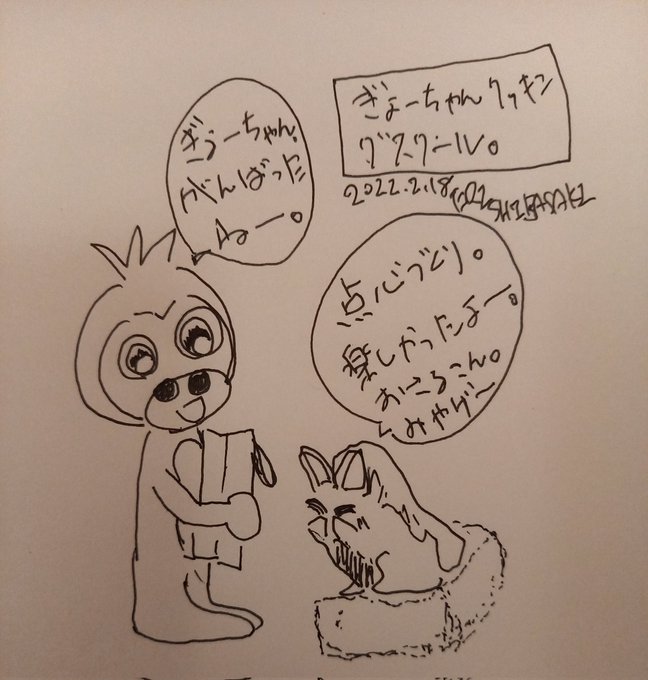 ぎょーちゃんクッキン
グスクール。
2022.2.18 SHIBASAKI
ぎょーちゃん。
がんばった
ねー。
点心づくり。
楽しかったよー。
おさるくん。
みやげ〜